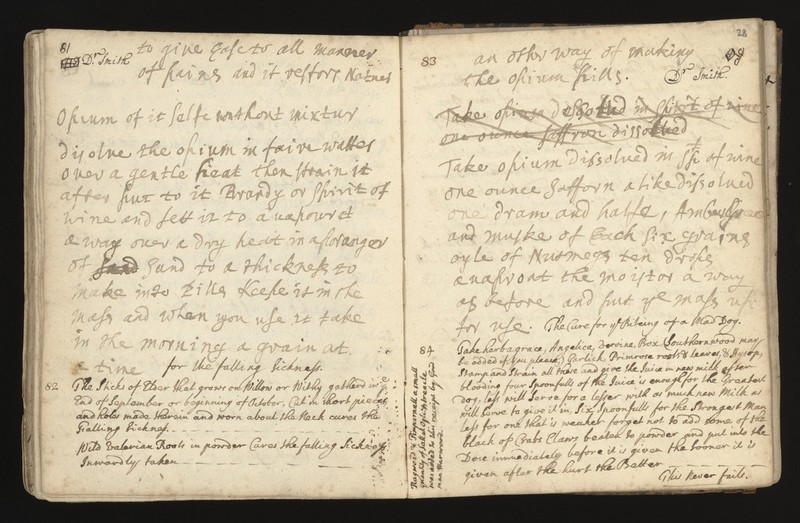 81
Dr Smith
to give Ease to all manner
of paines and it restors Natuer
Opium of it selfe without mixtur
disolve the opium in faire watter
over a gentle heat then strain it
after put to it Brandy or Spirit of
wine and sett it to
a way over a dry heat in a
of sand Sand to a thickness to
make into Pills Keepe it in the
mass and when you use it take
in the morning a grain at
a time
for the falling Sickness.
82
The Sticks of Elder that grows on Willow or Withy gatherd in ye
End of September or beginning of October. Cut in short pieces
and holes made therein and worn about the Neck cures the
Falling Sicknes.
Wild Valerian Roots in powder Cures the falling Sickness
Inwardly taken
28
83
an other way of making
the opium pills.
Dr Smith.
Take opium dessolved in Spirit of wine
one ounce saffron dissolved
Take opium Dissolved in spt of wine
one ounce Safforn a like dissolved
one dram and halfe, Ambergrees
and muske of Each Six grains
oyle of Nutmegs ten drops
evaporat the moistor a way
as before and put ye mass up
for use.
The Cure for ye Biteing of a Mad Dog.
84
Take herba grace, Angelica, Vervine, Box (Southernwood may
be added if you please) Garlick, Primrose roots & leaves, & Hysop,
Stamp and Strain all these and give the Juice in new milk after
blooding four Spoonfulls of the Juice is enough for the Greatest
Dog, less will Serve for a lesser with as much new Milk as
will serve to give it in, Six Spoonfulls for the Strongest Man
less for one that is weaker forget not to add some of the
black of Crabs Claws beaten to powder and put into the
Dose immediately before it is given the sooner it is
given after the hurt the Better
This Never fails.
Ragword & Pimpernall a small
was added to this receipt by